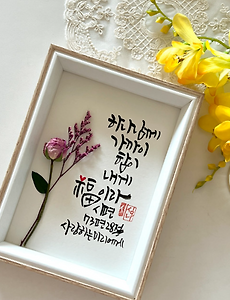 하나님께
가까이
함이
내게
福이라
시편
73편 28절
사랑하는미리에게